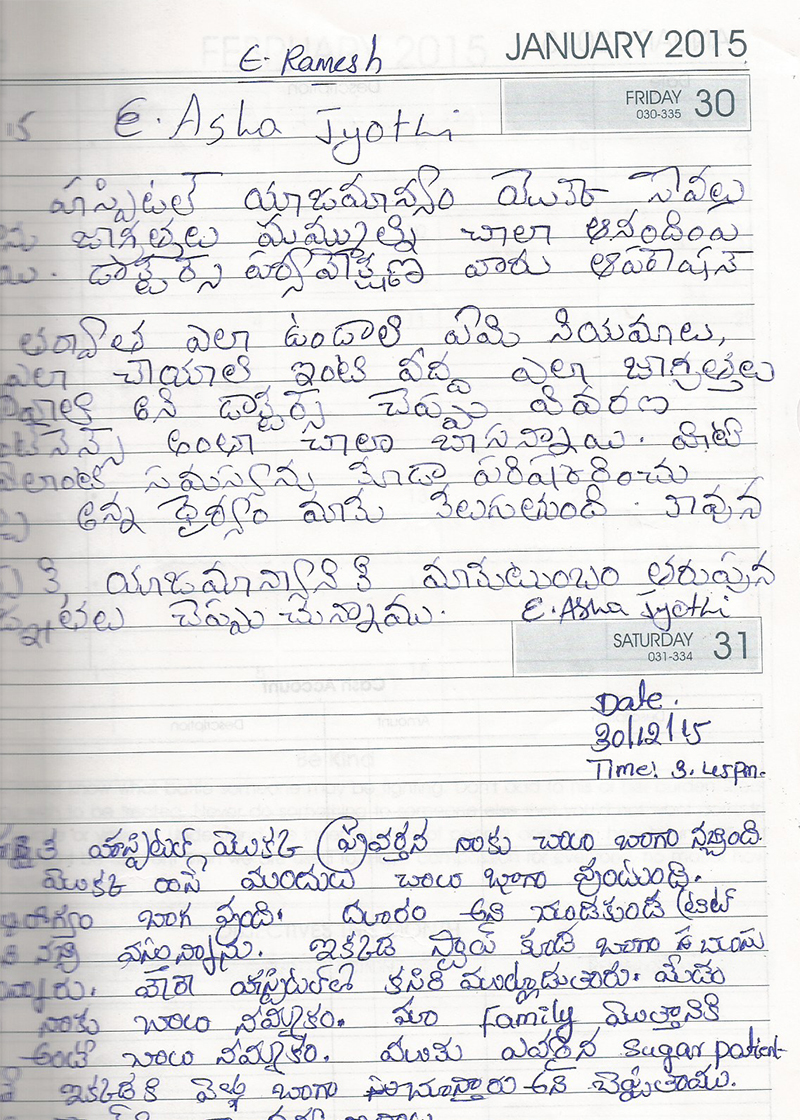 JANUARY 2015
E. Ramesh
FRIDAY 30
030-335
E. Asha Jyothi
హాస్పిటల్ యాజమాన్యం యొక్క సేవలు
జాగ్రత్తలు మమ్ముల్ని చాలా ఆనందింప
డాక్టర్స్ పర్యవేక్షణ వారు ఆపరేషన్
తర్వాత ఎలా ఉండాలి ఏమి నియమాలు,
ఎలా చేయాలి ఇంటి వద్ద ఎలా జాగ్రత్తలు
అని డాక్టర్స్ చెప్పు వివరణ
అంతా చాలా బాగున్నాయి. వాటి
ఎలాంటి సమస్యను కూడా పరిష్కరించు
అన్న ధైర్యం మాకు కలుగుతుంది. కావున
కి, యాజమాన్యానికి మా కుటుంబం తరుపున
చెప్పుచున్నాము. E. Asha Jyothi
SATURDAY 31
031-334
Date.
30/12/15
Time: 3.45pm.
హాస్పిటల్ యొక్క ప్రవర్తన నాకు చాలా బాగా నచ్చింది.
యొక్క రాసే మందులు చాలా బాగా వుంటుంది.
ఆరోగ్యం బాగ వుంది. దూరం అని చూడకుండ
నచ్చి వస్తున్నాను. ఇక్కడ స్టాఫ్ కూడ బాగా
హాస్పిటల్‌లో కలిసి మాట్లాడుతారు. మేడం
నాకు చాలా నమ్మకం. మా family మొత్తానికి
అంటే చాలా నమ్మకం. మేము ఎవరికైన sugar patient
ఇక్కడికి వెళ్ళు బాగా చూస్తారు అని చెప్పుతాము.